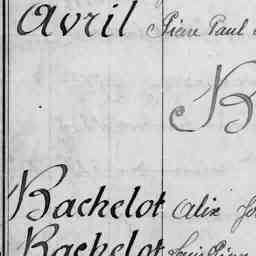 Avril Pierre Paul
B
Bachelot Alix
Bachelot Louis